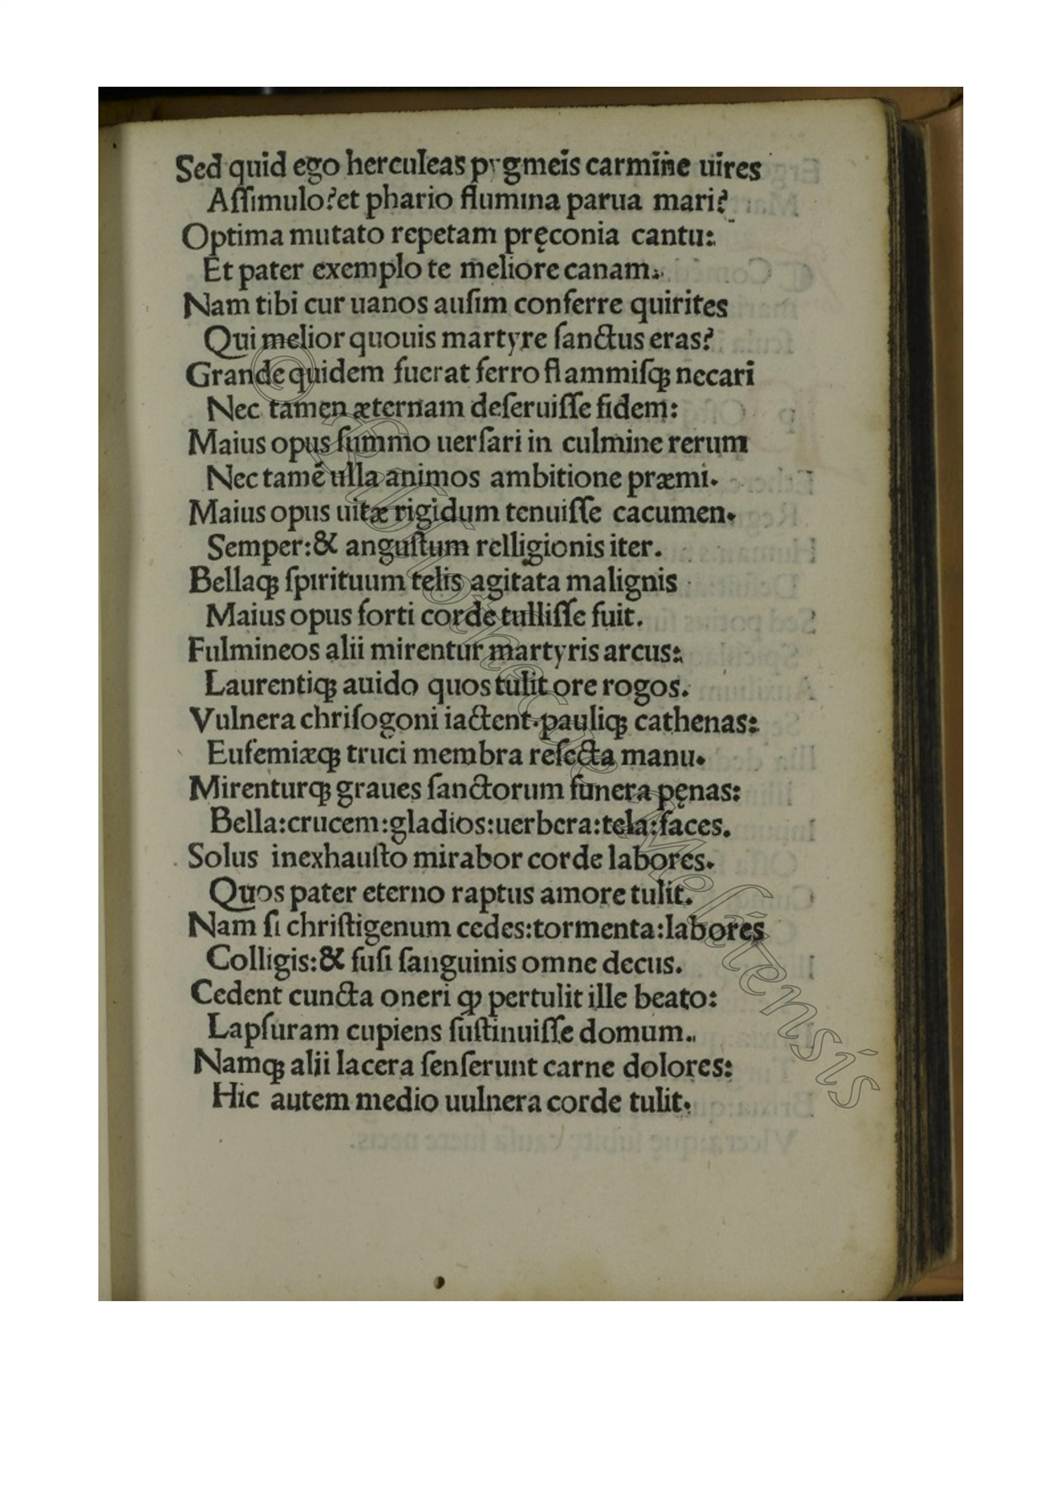 Sed quid ego herculeas pygmeis carmine uires
Aſſimulo?et phario flumina parua mari?
Optima mutato repetam pręconia cantu:
Et pater exemplo te meliore canam.
Nam tibi cur uanos auſim conferre quirites
Qui melior quouis martyre ſanctus eras?
Grande quidem fuerat ferro flammiſqꝫ necari
Nec tamen æternam deſeruiſſe fidem:
Maius opus ſummo uerſari in culmine rerum
Nec tamē ulla animos ambitione præmi.
Maius opus uitæ rigidum tenuiſſe cacumen.
Semper:& anguſtum relligionis iter.
Bellaqꝫ ſpirituum telis agitata malignis
Maius opus forti corde tulliſſe fuit.
Fulmineos alii mirentur martyris arcus:
Laurentiqꝫ auido quos tulit ore rogos.
Vulnera chriſogoni iactent.pauliqꝫ cathenas:
Eufemiæqꝫ truci membra reſecta manu.
Mirenturqꝫ graues ſanctorum funera pęnas:
Bella:crucem:gladios:uerbera:tela:faces.
Solus inexhauſto mirabor corde labores.
Quos pater eterno raptus amore tulit.
Nam ſi chriſtigenum cedes:tormenta:labores
Colligis:& fuſi ſanguinis omne decus.
Cedent cuncta oneri ꝙ pertulit ille beato:
Lapſuram cupiens ſuſtinuiſſe domum.
Namqꝫ alii lacera ſenſerunt carne dolores:
Hic autem medio uulnera corde tulit.
© Bibliotheca Melitensis